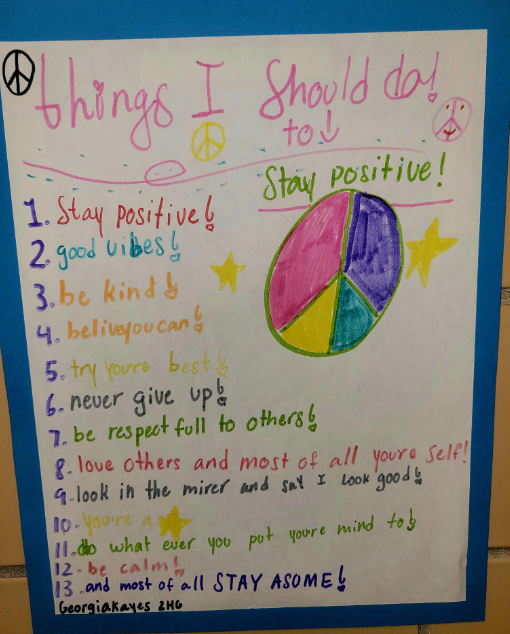 things I Should do!
to
Stay positive!
1. Stay positive!
2. good vibes!
3. be kind!
4. beliveyoucan!
5. try youre best!
6. never give up!
7. be respect full to others!
8. love others and most of all youre self!
9. look in the mirer and say I look good!
10. you're a
11. do what ever you put youre mind to!
12. be calm!
13. and most of all STAY ASOME!
Georgiakayes 2HG